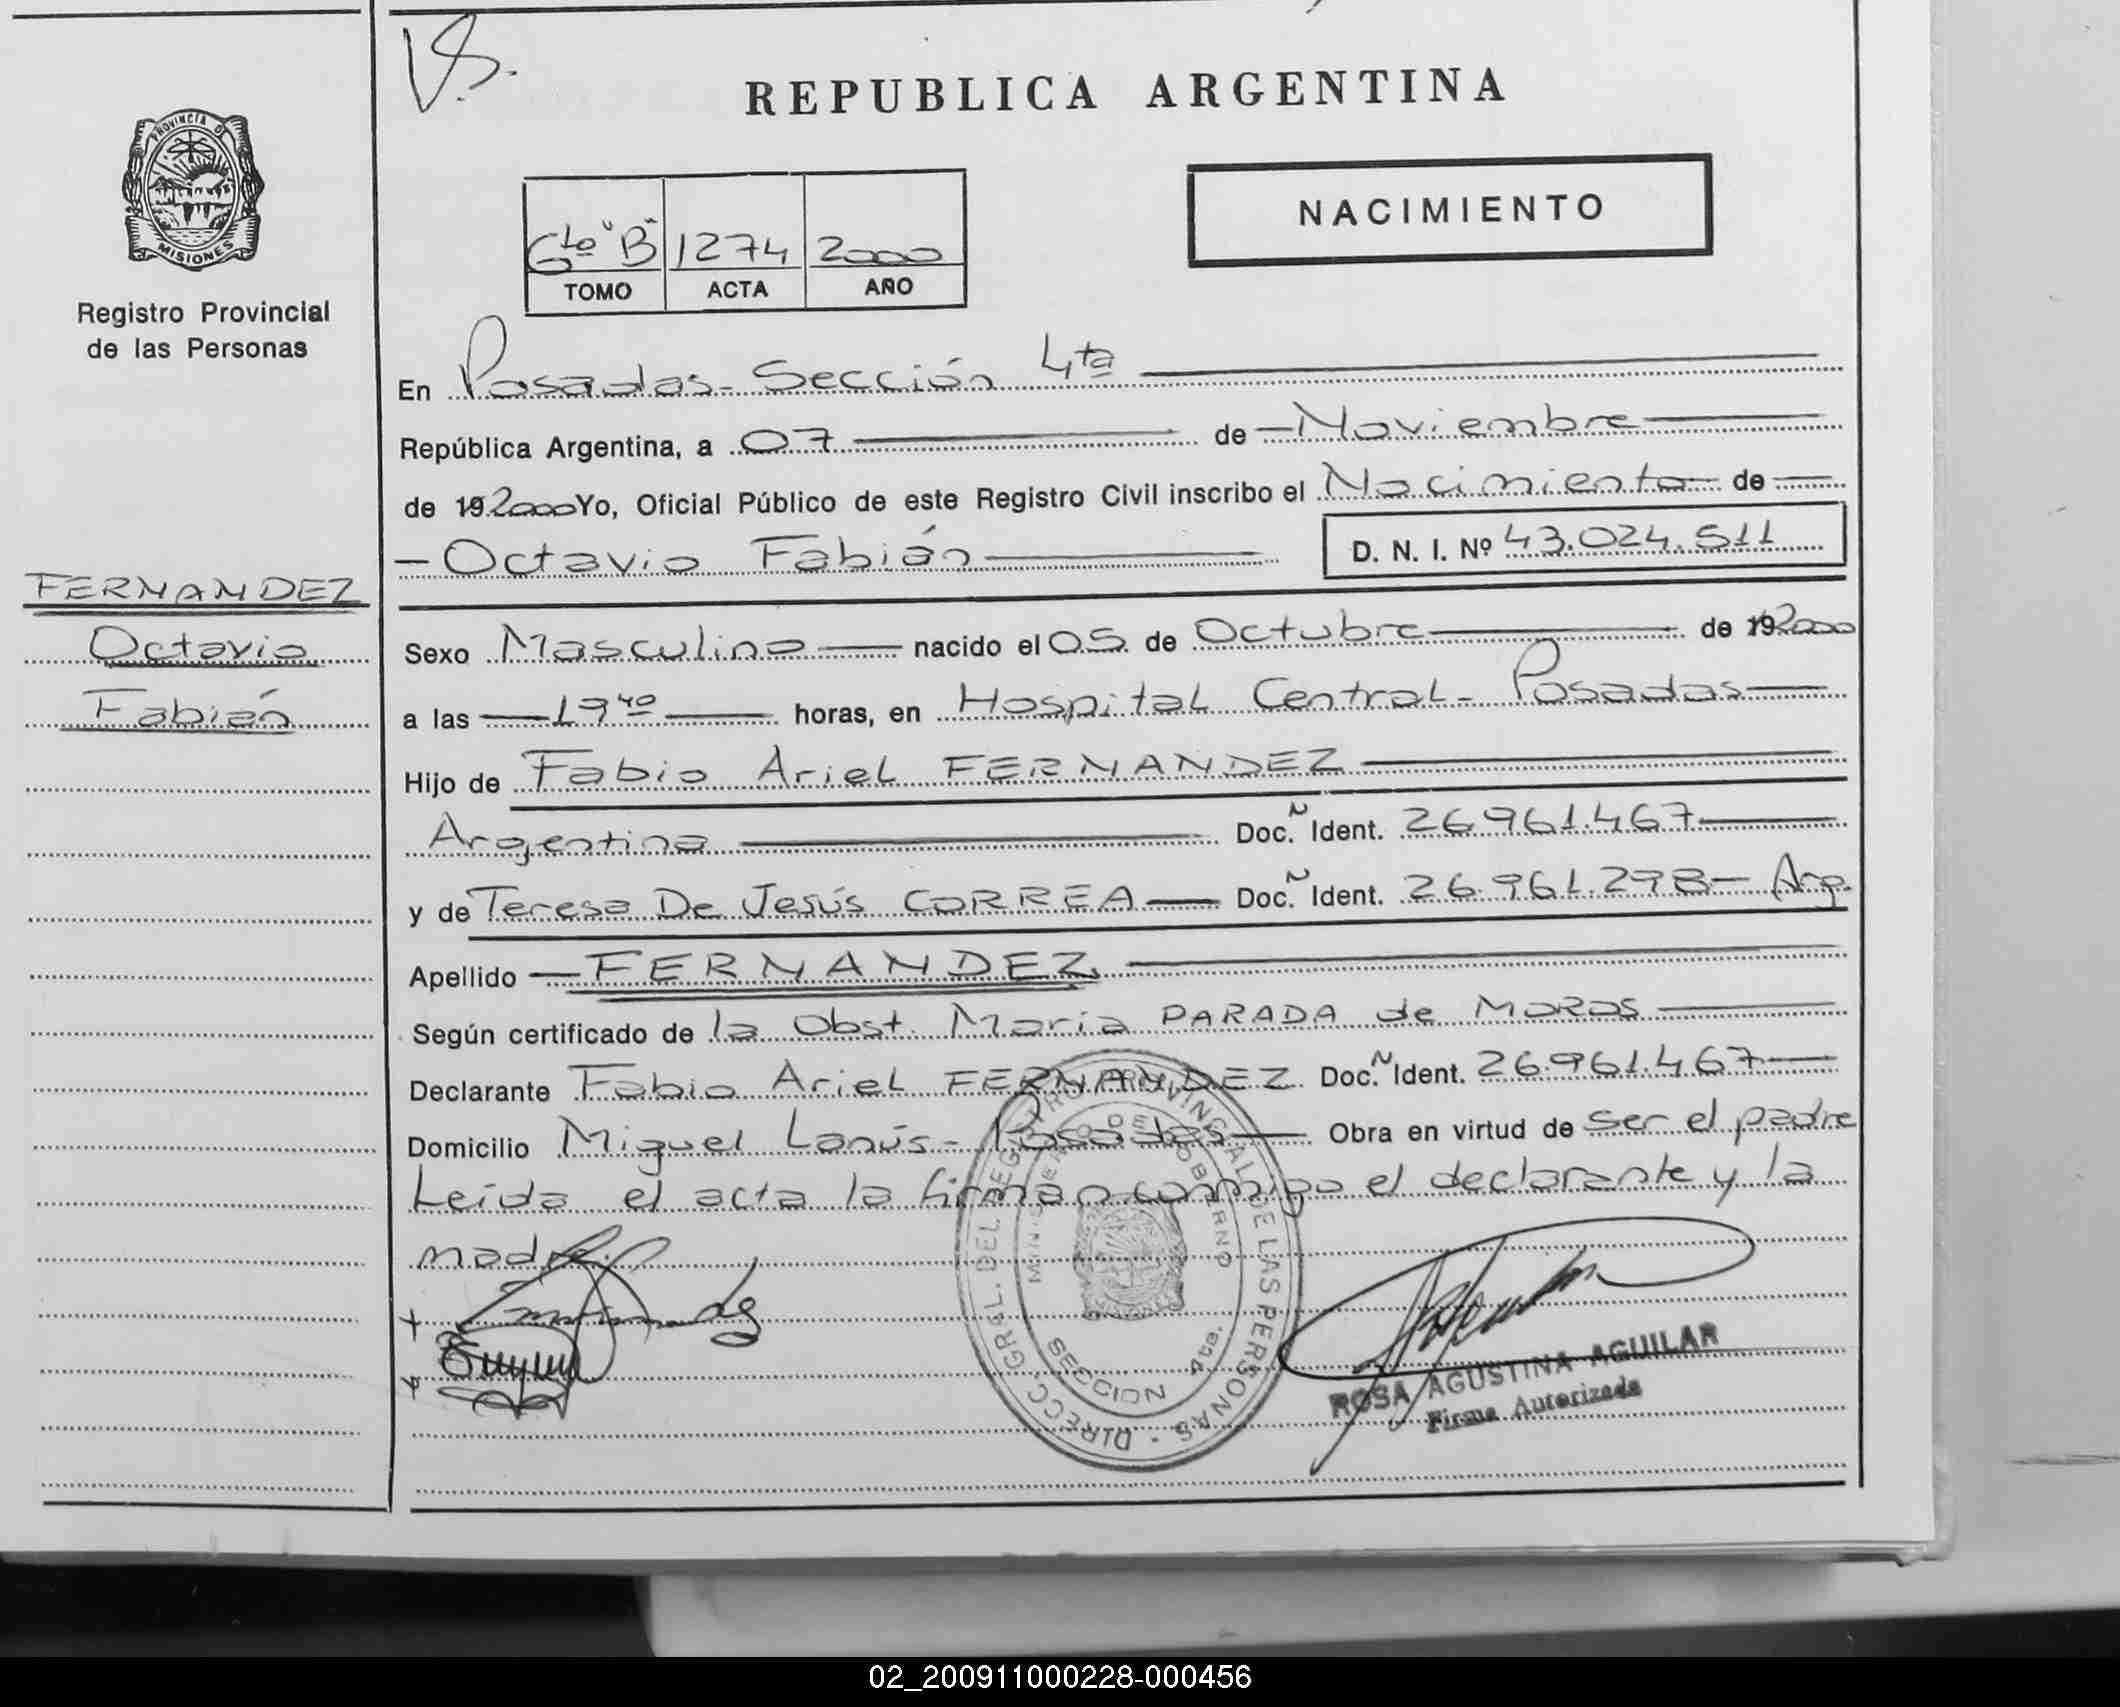 VS.
REPUBLICA ARGENTINA
PROVINCIA DE
MISIONES
Registro Provincial
de las Personas
NACIMIENTO
6to "B" 1274 2000
TOMO ACTA AÑO
En Posadas - Sección 4ta
República Argentina, a 07 de Noviembre
de 19 2000 Yo, Oficial Público de este Registro Civil inscribo el Nacimiento de
Octavio Fabián D. N. I. Nº 43.024.511
FERNANDEZ
Octavio
Fabián
Sexo Masculino nacido el 05 de Octubre de 19 2000
a las 19 40 horas, en Hospital Central - Posadas
Hijo de Fabio Ariel FERNANDEZ
Argentina Doc. Ñ Ident. 26.961.467
y de Teresa De Jesús CORREA Doc. Ñ Ident. 26.961.298 - Arg.
Apellido FERNANDEZ
Según certificado de la Obst. Maria PARADA de MORAS
Declarante Fabio Ariel FERNANDEZ Doc. Ñ Ident. 26.961.467
Domicilio Miguel Lanús - Posadas Obra en virtud de ser el padre
Leída el acta la firman conmigo el declarante y la
madre.
DIRECC. GRAL. DEL REGISTRO PROVINCIAL DE LAS PERSONAS -
MINISTERIO DE GOBIERNO
SECCION 4ta.
ROSA AGUSTINA AGUILAR
Firma Autorizada
02_200911000228-000456